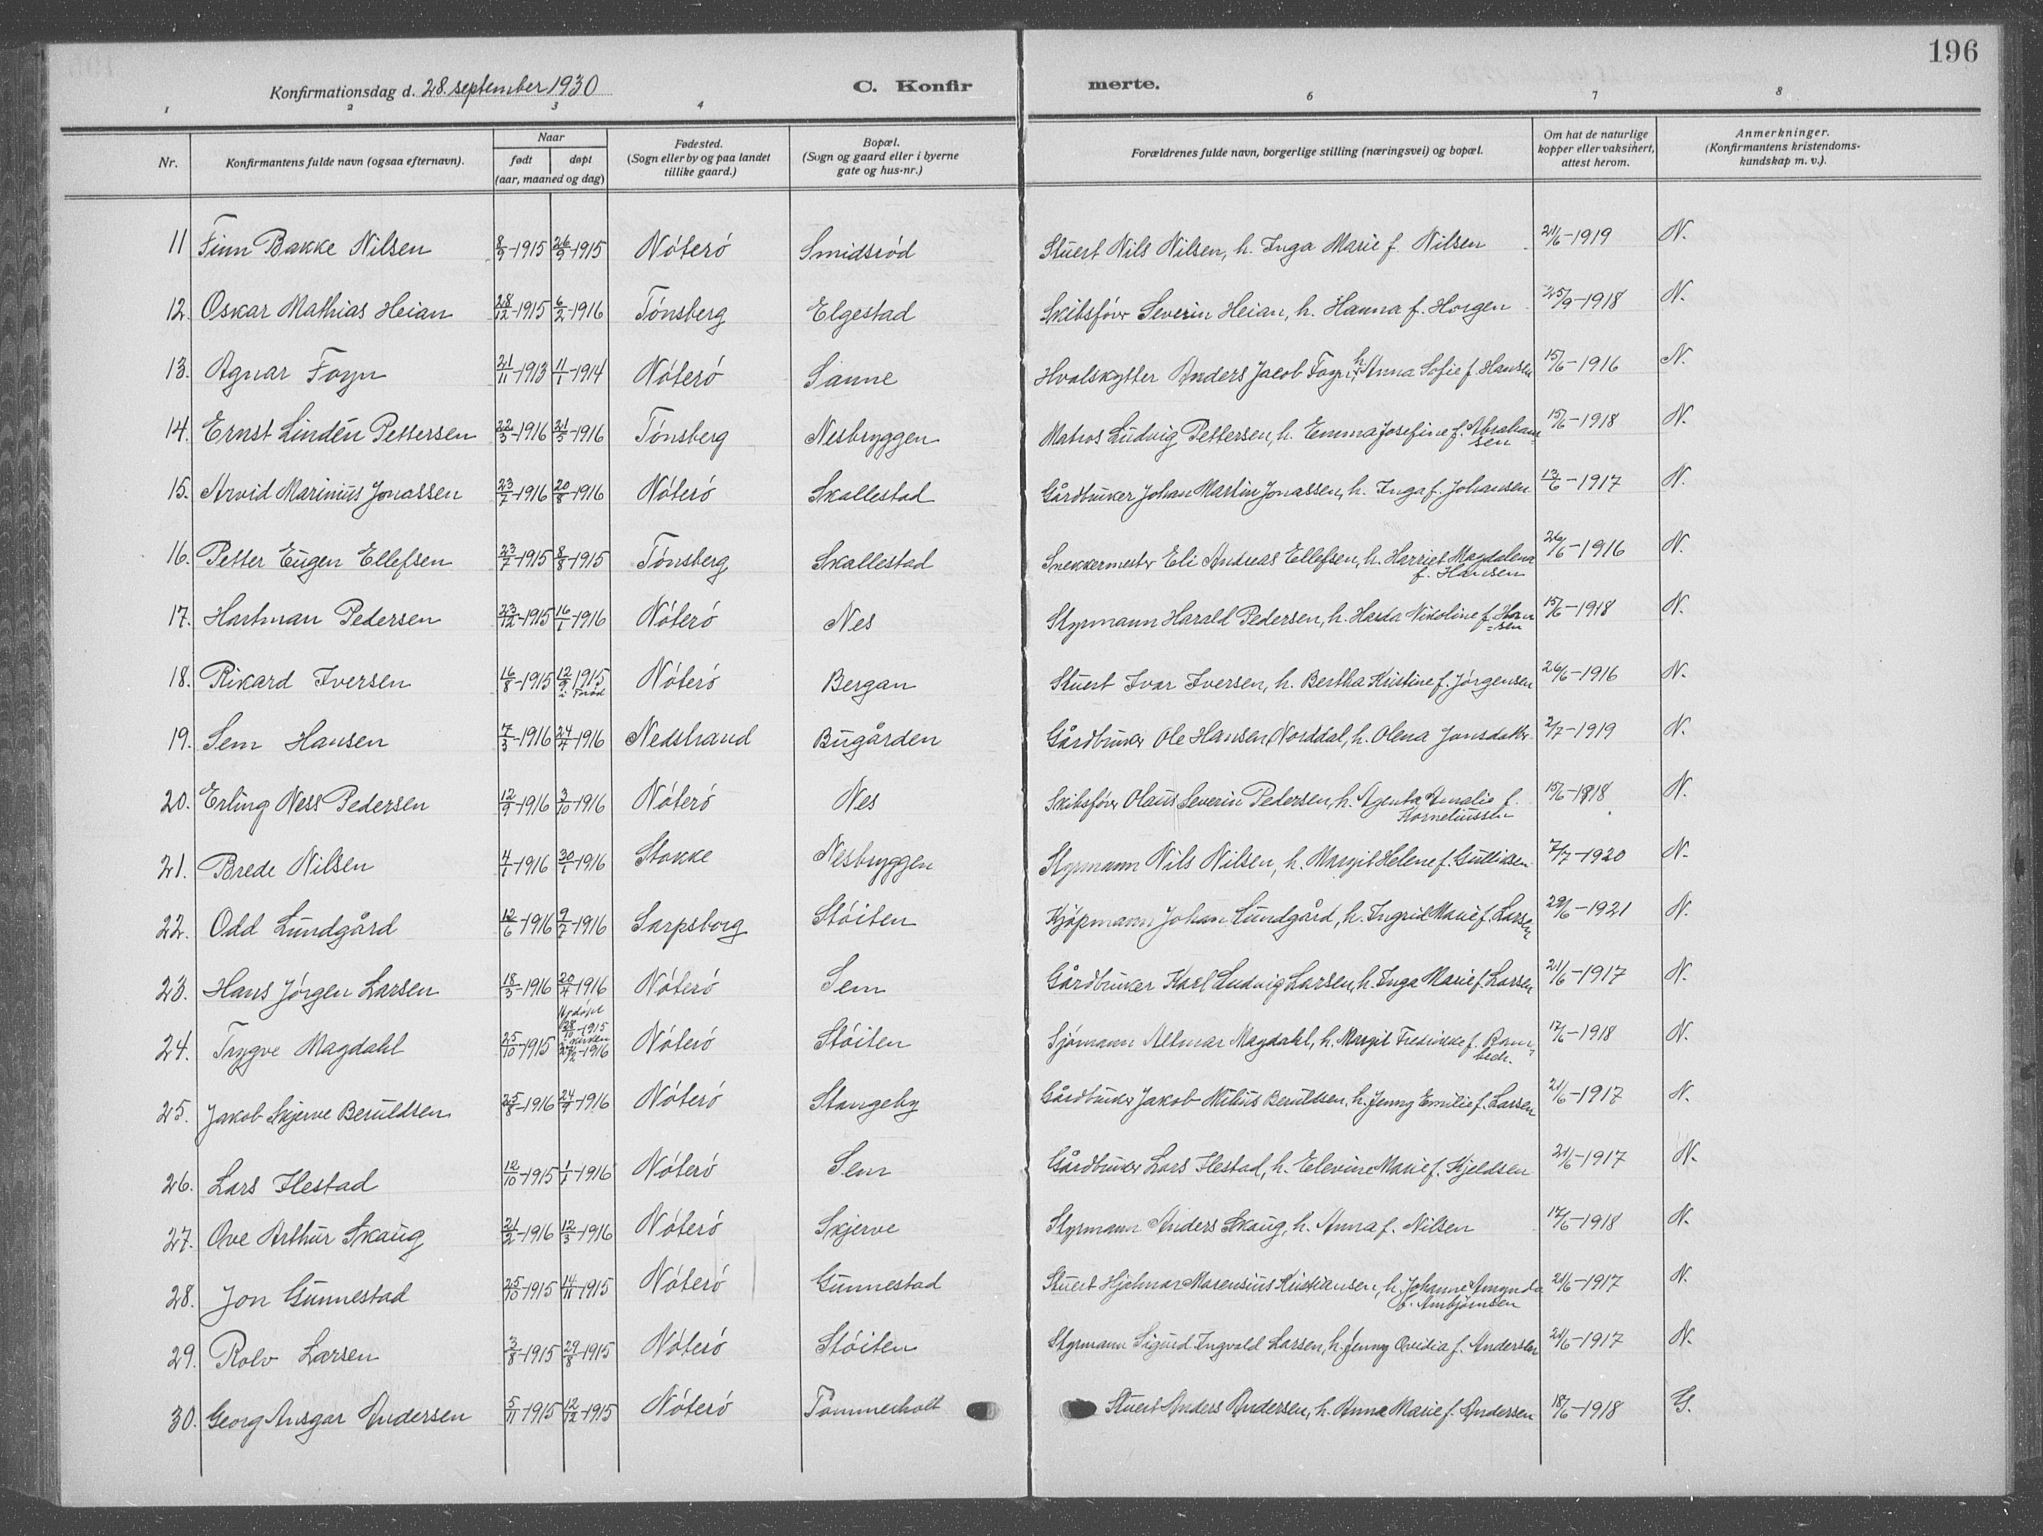 196
Konfirmationsdag d. 28. september 1930 C. Konfirmerte.
1 2 3 4 6 7 8
Nr. | Konfirmantens fulde navn (ogsaa efternavn). | Naar født døpt (aar, maaned og dag) | Fødested. (Sogn eller by og paa landet tillike gaard.) | Bopæl. (Sogn og gaard eller i byerne gate og hus-nr.) | Forældrenes fulde navn, borgerlige stilling (næringsvei) og bopæl. | Om hat de naturlige kopper eller vaksinert, attest herom. | Anmerkninger. (Konfirmantens kristendomskundskap m. v.).
11 Finn Bakke Nilsen 8/9-1915 26/9-1915 Nøterø Smidsrød Stuert Nils Nilsen, h. Inga Marie f. Nilsen 21/6-1919 N.
12. Oskar Mathias Heian 28/12-1915 6/2-1916 Tønsberg Elgestad Skibsfører Severin Heian, h. Hanna f. Horgen 25/9-1918 N.
13. Agnar Foyn 21/11-1913 11/1-1914 Nøterø Sanne Hvalskytter Anders Jacob Foyn, h. Anna Sofie f. Hansen 15/6-1916 N.
14. Ernst Lindén Pettersen 22/3-1916 21/5-1916 Tønsberg Nesbryggen Matros Ludvig Pettersen, h. Emma Josefine f. Abrahamsen 15/6-1918 N.
15. Arvid Marinius Jonassen 23/7-1916 20/8-1916 Nøterø Skallestad Gårdbruker Johan Martin Jonassen, h. Inga f. Johansen 13/6-1917 N.
16. Petter Eugen Ellefsen 23/7-1915 8/8-1915 Tønsberg Skallestad Snekkermester Eli Andreas Ellefsen, h. Harriet Magdalena f. Hansen 26/6-1916 N.
17. Hartman Pedersen 23/12-1915 16/1-1916 Nøterø Nes Styrmann Harald Pedersen, h. Harda Nikoline f. Hansen 15/6-1918 N.
18. Rikard Iversen 16/8-1915 12/9-1915 Nøterø Bergan Stuert Ivar Iversen, h. Bertha Kristine f. Jørgensen 26/6-1916 N.
19. Sem Hansen 7/3-1916 24/4-1916 Nedstrand Bugården Gårdbruker Ole Hansen Norddal, h. Olena Jonsdatter 2/7-1919 N.
20. Erling Ness Pedersen 12/9-1916 3/10-1916 Nøterø Nes Skibsfører Olaus Severin Pedersen, h. Agenta Amalie f. Korneliussen 15/6-1918 N.
21. Brede Nilsen 4/1-1916 30/1-1916 Stokke Nesbryggen Styrmann Nils Nilsen, h. Margit Helene f. Gulliksen 7/7-1920 N.
22. Odd Lundgård 12/6-1916 9/7-1916 Sarpsborg Støiten Kjøpmann Johan Lundgård, h. Ingrid Marie f. Larsen 29/6-1921 N.
23. Hans Jørgen Larsen 18/3-1916 20/4-1916 Nøterø Sem Gårdbruker Karl Ludvig Larsen, h. Inga Marie f. Larsen 21/6-1917 N.
24. Trygve Magdahl 25/10-1915 Hj.døpt 28/10-1915 i kirken 27/2-1916 Nøterø Støiten Sjømann Altmar Magdahl, h. Margit Fredrikke f. 17/6-1918 N.
25. Jakob Skjerve Beruldsen 25/8-1916 24/9-1916 Nøterø Stangeby Gårdbruker Jakob Nilius Beruldsen, h. Jenny Emilie f. Larsen 21/6-1917 N.
26. Lars Ilestad 12/10-1915 1/1-1916 Nøterø Sem Gårdbruker Lars Ilestad, h. Elevine Marie f. Kjeldsen 21/6-1917 N.
27. Ove Arthur Skaug 21/2-1916 12/3-1916 Nøterø Skjerve Styrmann Anders Skaug, h. Anna f. Nilsen 17/6-1918 N.
28. Jon Gunnestad 25/10-1915 14/11-1915 Nøterø Gunnestad Stuert Hjalmar Marensius Kristiansen, h. Johanne Amynda f. Ambjørnsen 21/6-1917 N.
29. Rolv Larsen 3/8-1915 29/8-1915 Nøterø Støiten Styrmann Sigurd Ingvald Larsen, h. Jenny Ovidia f. Andersen 21/6-1917 N.
30. Georg Ansgar Andersen 5/11-1915 12/12-1915 Nøterø Tommerholt Stuert Anders Andersen, h. Anna Marie f. Andersen 18/6-1918 G.